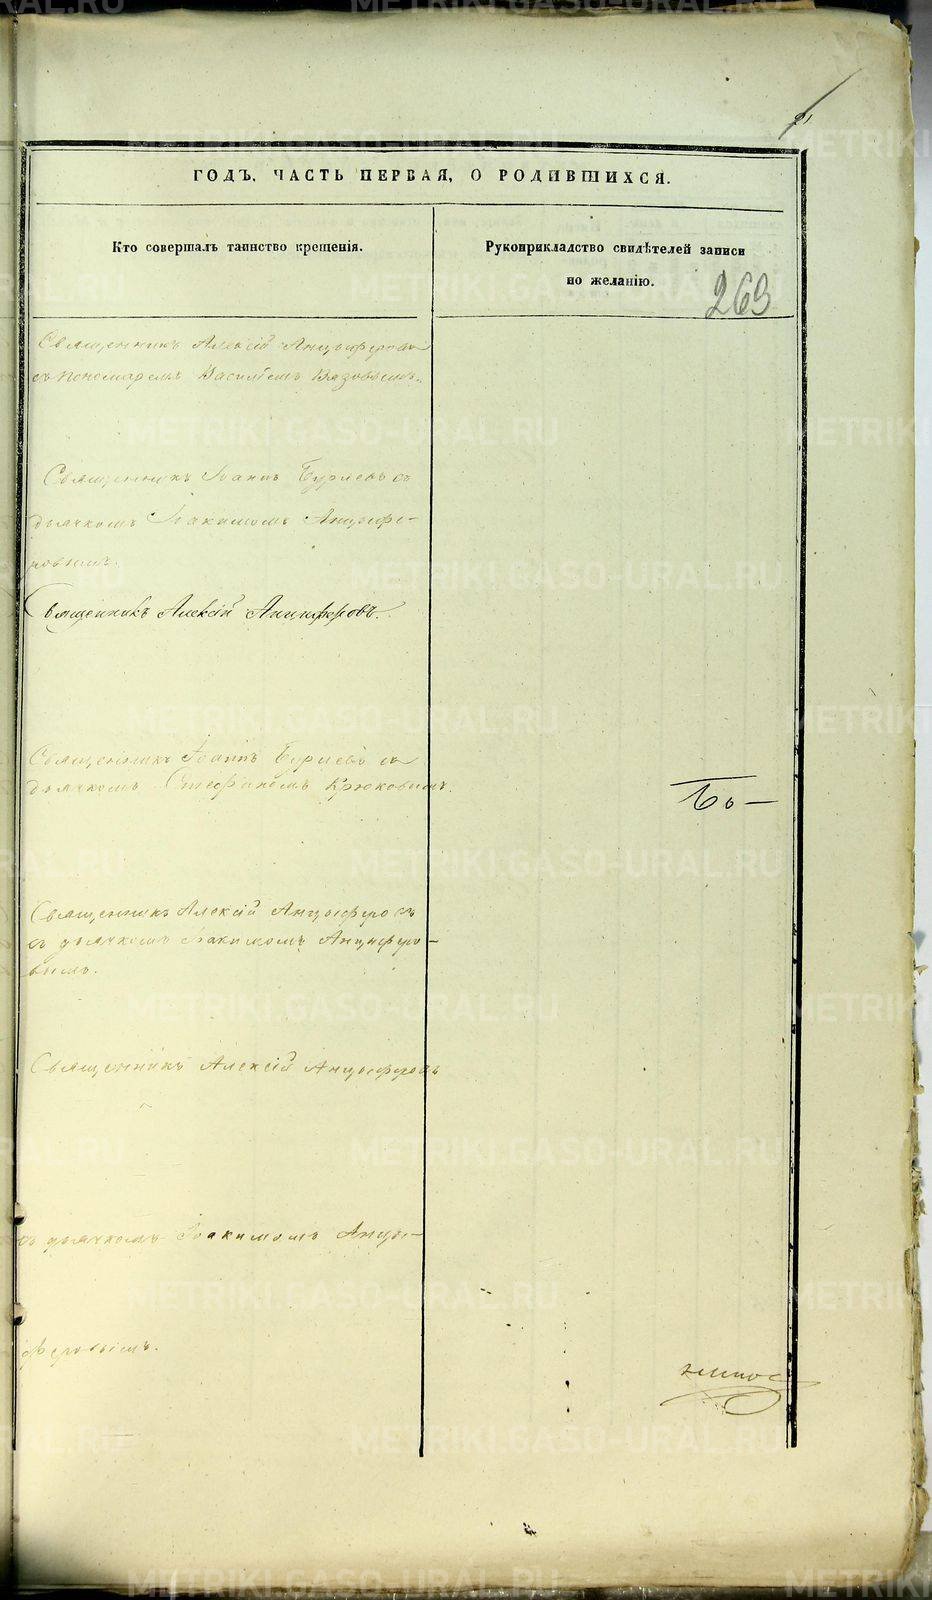 ГОДЪ, ЧАСТЬ ПЕРВАЯ, О РОДИВШИХСЯ.
Кто совершалъ таинство крещенія.
Рукоприкладство свидѣтелей записи
по желанію.
263
Священникъ Алексій Анцыферовъ
съ пономаремъ Василіемъ
Священникъ Іоаннъ Бурцевъ съ
дьячкомъ Іоакимомъ Анцыфе-
ровымъ.
Священникъ Алексій Анциферовъ.
Священникъ Іоаннъ Бурцевъ съ
дьячкомъ Стефаномъ Крюковымъ.
Священникъ Алексій Анцыферовъ
съ дьячкомъ Іоакимомъ Анциферо-
вымъ.
Священникъ Алексій Анцыферовъ
съ дьячкомъ Іоакимомъ Анцы-
феровымъ.
METRIKI.GASO-URAL.RU